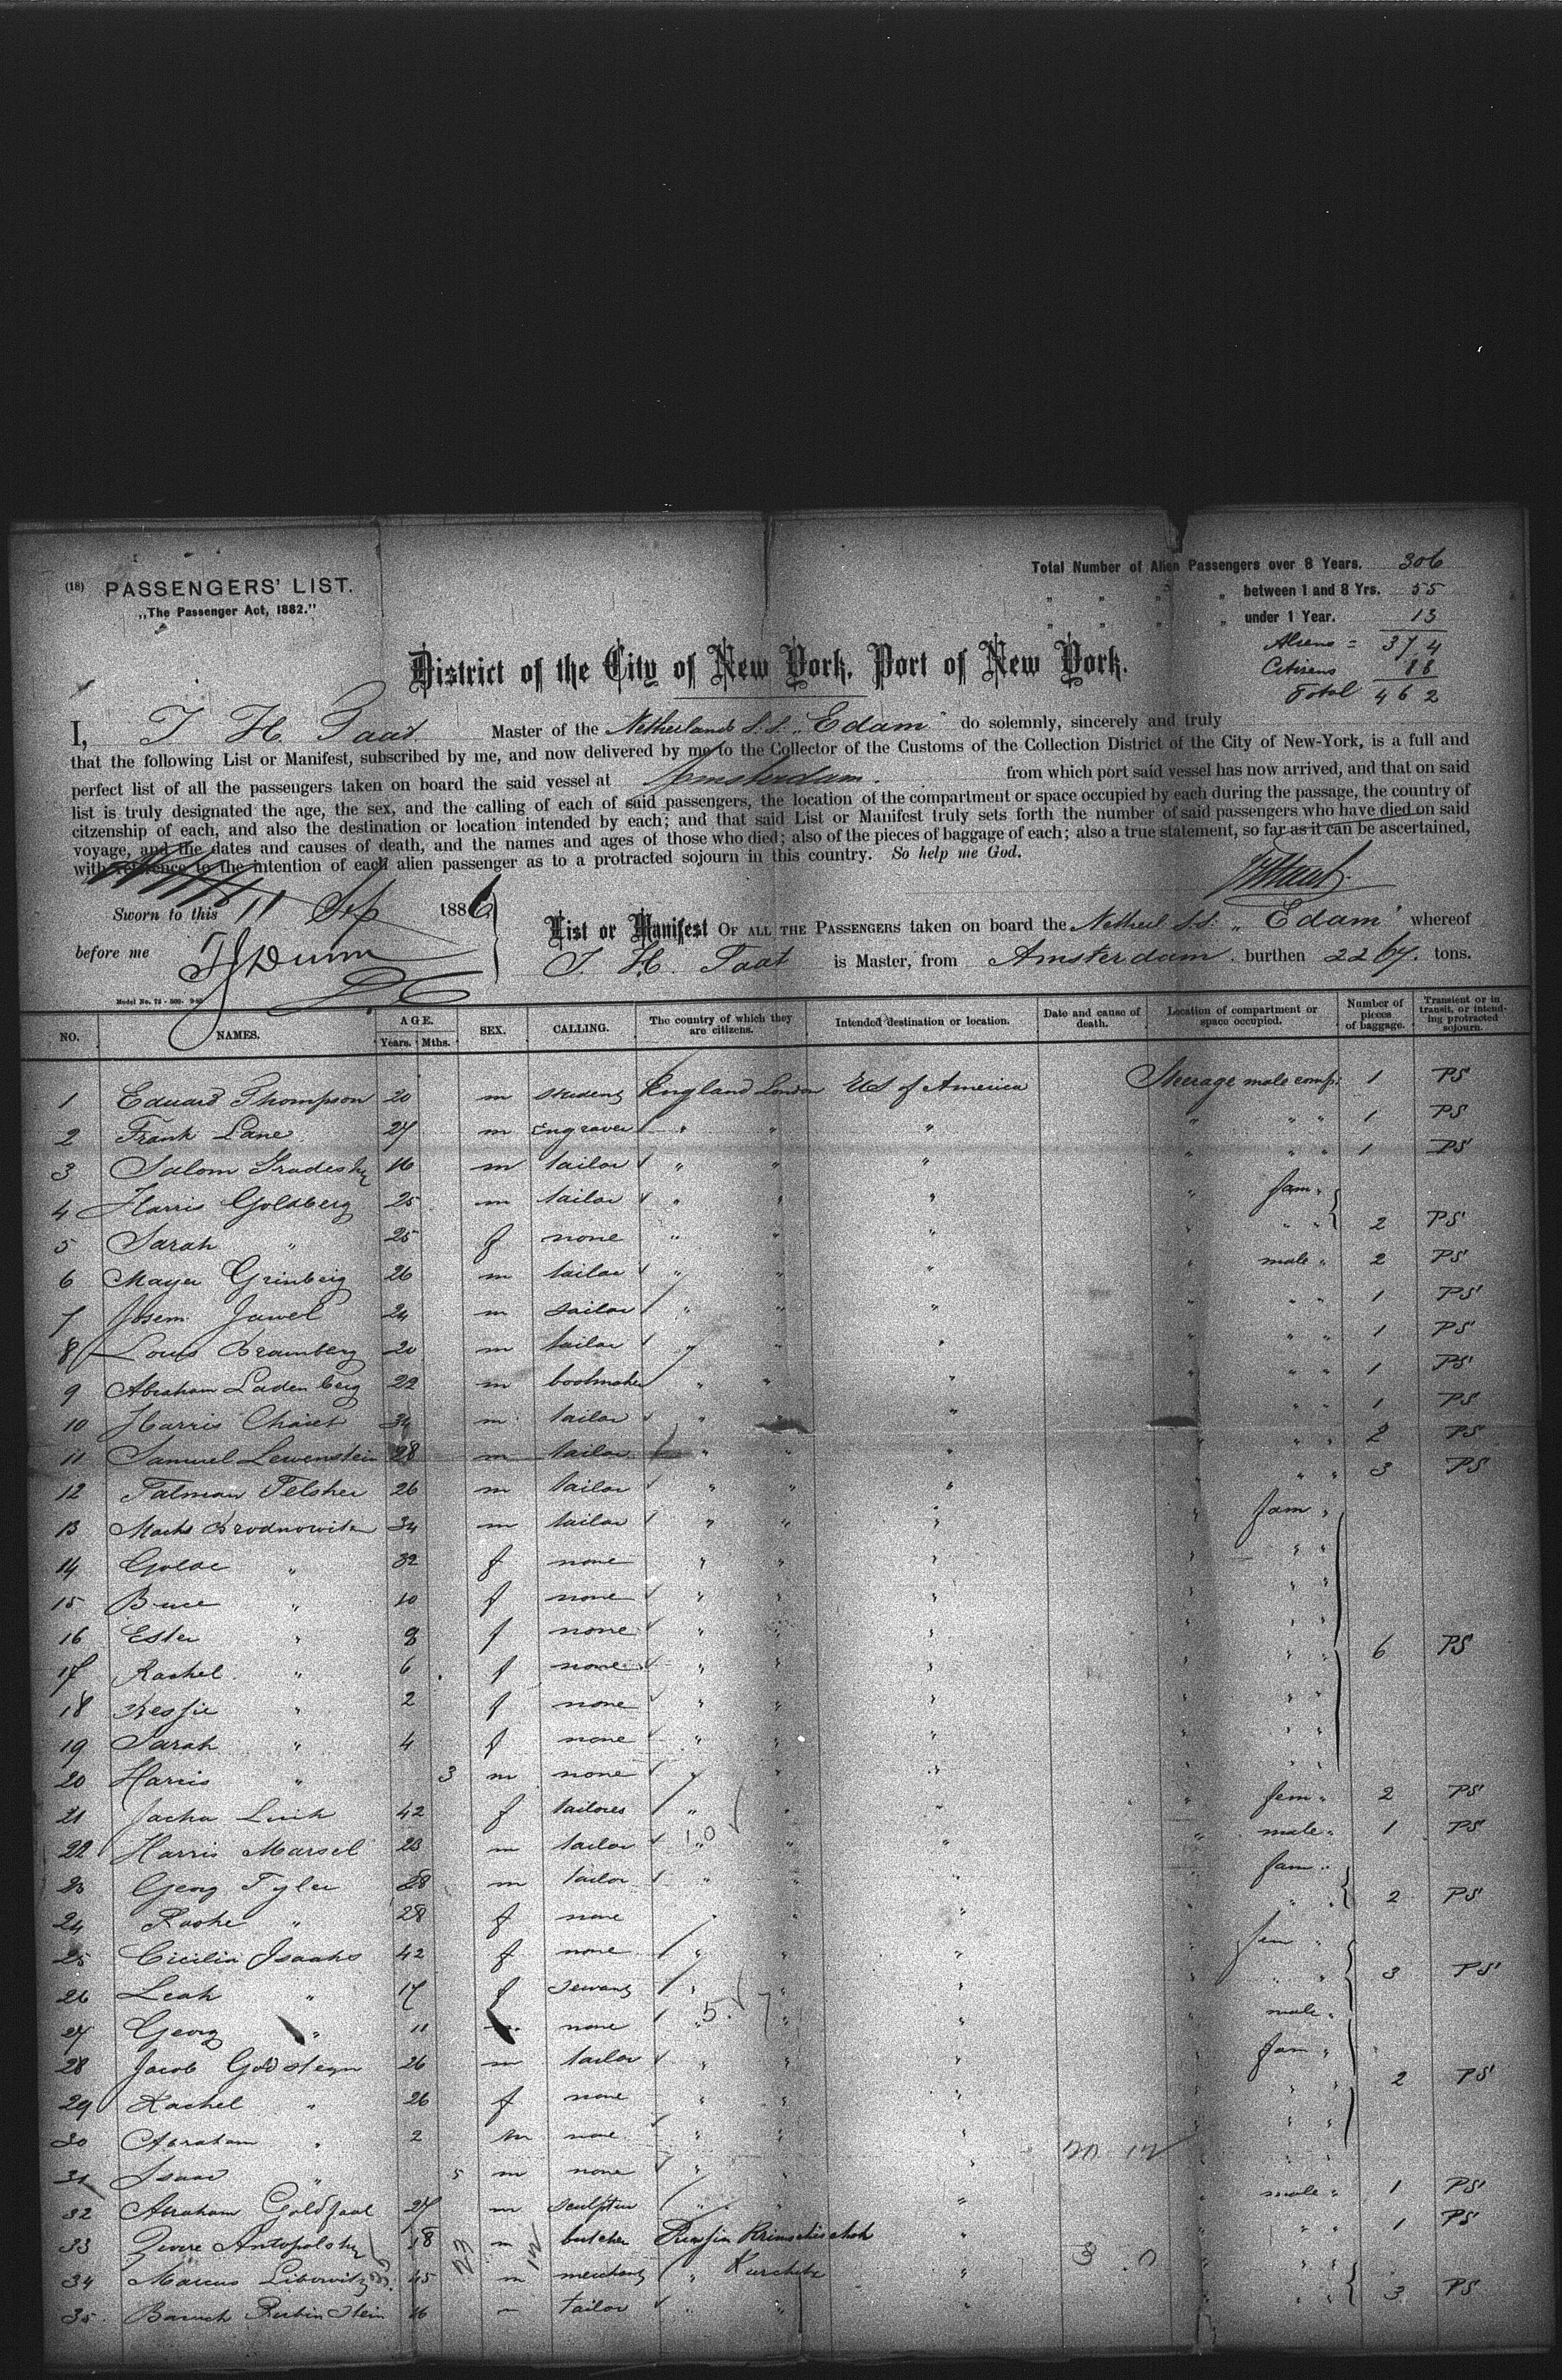 (18) PASSENGERS' LIST.
„The Passenger Act, 1882."
Total Number of Alien Passengers over 8 Years. 306
„ „ „ „ between 1 and 8 Yrs. 55
„ „ „ „ under 1 Year. 13
Aliens = 374
Citizens 88
Total 462
District of the City of New York, Port of New York.
I, J H Taat Master of the Netherlands S.S. „Edam" do solemnly, sincerely and truly
that the following List or Manifest, subscribed by me, and now delivered by me to the Collector of the Customs of the Collection District of the City of New-York, is a full and
perfect list of all the passengers taken on board the said vessel at Amsterdam. from which port said vessel has now arrived, and that on said
list is truly designated the age, the sex, and the calling of each of said passengers, the location of the compartment or space occupied by each during the passage, the country of
citzenship of each, and also the destination or location intended by each; and that said List or Manifest truly sets forth the number of said passengers who have died on said
voyage, and the dates and causes of death, and the names and ages of those who died; also of the pieces of baggage of each; also a true statement, so far as it can be ascertained,
with reference to the intention of each alien passenger as to a protracted sojourn in this country. So help me God.
JHTaat
Sworn to this 11 Sep 1886
before me
List or Manifest OF ALL THE PASSENGERS taken on board the Netherl S.S. „Edam" whereof
J. H. Taat is Master, from Amsterdam. burthen 2267. tons.
NO. NAMES. AGE. Years. Mths. SEX. CALLING. The country of which they are citizens. Intended destination or location. Date and cause of death. Location of compartment or space occupied. Number of pieces of baggage. Transient or in transit, or intending protracted sojourn.
1 Eduard Thompson 20 m student England London US of America Steerage male comp. 1 PS
2 Frank Lane 27 m Engraver " " " " " " 1 PS
3 Salom 16 m tailor " " " " " " 1 PS
4 Harris Goldberg 25 m tailor " " " " fam "
5 Sarah " 25 f none " " " " " " 2 PS
6 Mayer Grinberg 26 m tailor " " " " male " 2 PS
7 Jawel 24 m sailor " " " " " " 1 PS
8 Louis Bramberg 20 m tailor " " " " " " 1 PS
9 Abraham Ladenberg 22 m bootmaker " " " " " " 1 PS
10 Harris 34 m tailor " " " " " " 1 PS
11 Samuel Lewenstein 28 m tailor " " " " " " 2 PS
12 Talman Felsher 26 m tailor " " " " " " 3 PS
13 34 m tailor " " " " fam "
14 Golde " 32 f none " " " " " "
15 " 10 f none " " " " " "
16 Ester " 8 f none " " " " " "
17 Rachel " 6 f none " " " " " " 6 PS
18 " 2 f none " " " " " "
19 Sarah " 4 f none " " " " " "
20 Harris " 3 m none " " " " " "
21 42 f tailores " " " " fem " 2 PS
22 Harris Marsel 23 m tailor " " " " male " 1 PS
23 Georg Tyler 28 m tailor " " " " fam "
24 " 28 f none " " " " " " 2 PS
25 Cicilia Isaaks 42 f none " " " " fem "
26 Leah " 17 f servant " " " " " " 3 PS
27 Georg " 11 m none " " " " male "
28 Jacob Goldsteyn 26 m tailor " " " " fam "
29 Rachel " 26 f none " " " " " " 2 PS
30 Abraham " 2 m none " " " " " "
31 Isaac " 5 m none " " " " " "
32 Abraham Goldfaal 27 m sculpteur " " " " male " 1 PS
33 Antopolsky 18 m butcher " " " " 1 PS
34 Marcus Libowitz 45 m merchant " " " " "
35 Baruch Rubinstein 16 m tailor " " " " " " 3 PS